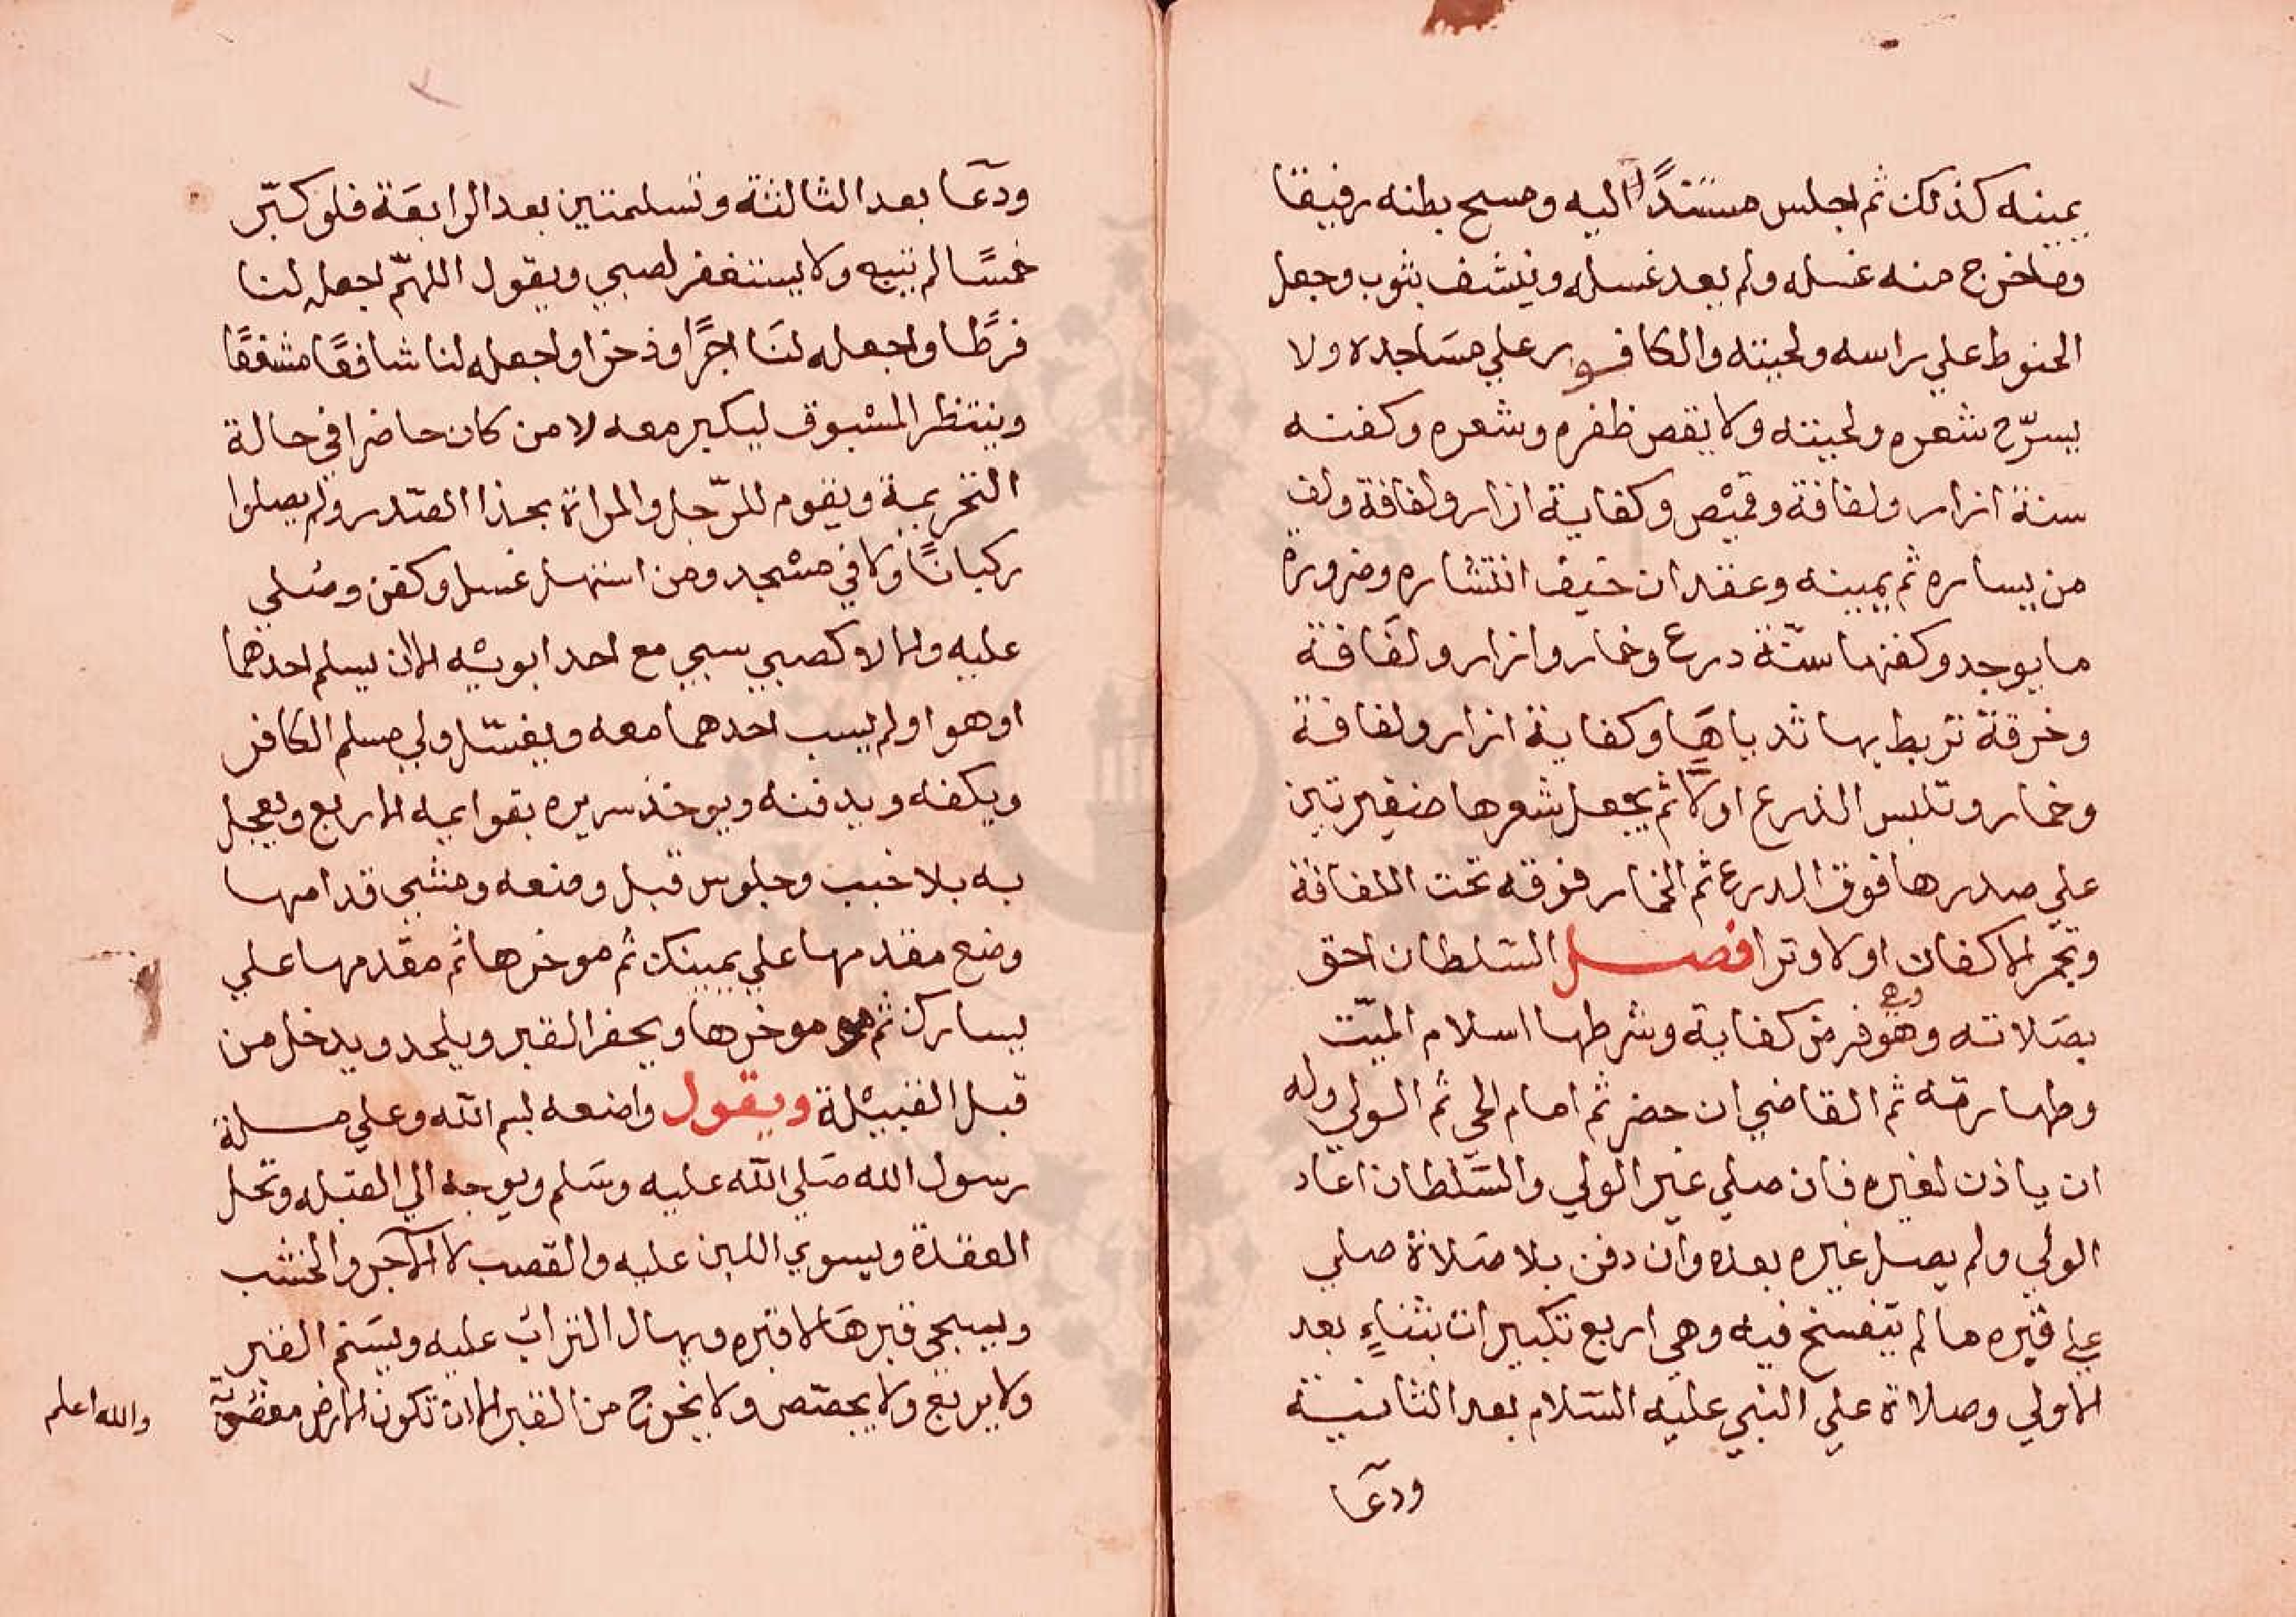 يمينه كذلك ثم اجلس مسنداً اليه ومسح بطنه رفيقا
وما خرج منه غسله ولم يعد غسله وينشف بثوب وجعل
الحنوط علي راسه ولحيته والكافور علي مساجده ولا
يسرّح شعره ولحيته ولا يقص ظفره وشعره وكفنه
سنة ازار ولفافة وقميص وكفاية ازار ولفافة ولف
من يساره ثم يمينه وعقد ان خيف انتشاره وضرورة
ما يوجد وكفنها سنّة درع وخمار وازار ولفافة
وخرقة تربط بها ثدياها وكفاية ازار ولفافة
وخمار وتلبس الدرع اولاً ثم يجعل شعرها ضفيرتين
علي صدرها فوق الدرع ثم الخمار فوقه تحت اللفافة
وتجمر الاكفان اولا وترا فصل السلطان احق
بصلاته وهو فرض كفاية وشرطها اسلام الميّت
وطهارته ثم القاضي ان حضر ثم امام الحي ثم الولي وله
ان ياذن لغيره فان صلي غير الولي والسّلطان اعاد
الولي ولم يصل غيره بعده وان دفن بلا صلاة صلي
علي قبره ما لم يتفسخ فيه وهي اربع تكبيرات بثناءٍ بعد
الاولي وصلاة علي النبي عليه السّلام بعد الثانية
ودعآ
ودعآ بعد الثالثة وتسلمتين بعد الرابعة فلو كبّر
خمسًا لم تتبع ولا يستغفر لصبي ويقول اللهمّ اجعله لنا
فرطًا واجعله لنا اجرًا وذخرا واجعله لنا شافعًا مشفعًا
وينتظر المسبوق ليكبر معه لا من كان حاضرا في حالة
التحريمة ويقوم للرّجل والمراة بحذا الصّدر ولم يصلوا
ركبانًا ولا في مسْجد ومن استهل غسل وكفن وصلي
عليه والا لا وكصبي سبي مع احد ابويْه الا ان يسلم احدهما
او هو او لم يسب احدهما معه ويغسّل ولي مسلم الكافر
ويكفنه ويدفنه ويوخذ سريره بقوايمه الاربع ويعجل
به بلا خبب وجلوس قبل وضعه ومشي قدامها
وضع مقدمها علي يمينك ثم موخرها ثم مقدمها علي
يسارك ثم موخرها ويحفر القبر ويلحد ويدخل من
قبل القبيْلة ويقول واضعه بسم الله وعلي ملة
رسول الله صَلي الله عليه وسَلم ويوجه الي القبله وتحل
العقدة ويسوي اللبن عليه والقصب لا الآجر والخشب
ويسجي قبرهَا لا قبره ويهال التراب عليه ويسَنم القبر
ولا يربّع ولا يجصّص ولا يخرج من القبر الا ان تكون الارض مغصُوبَة
والله اعلم